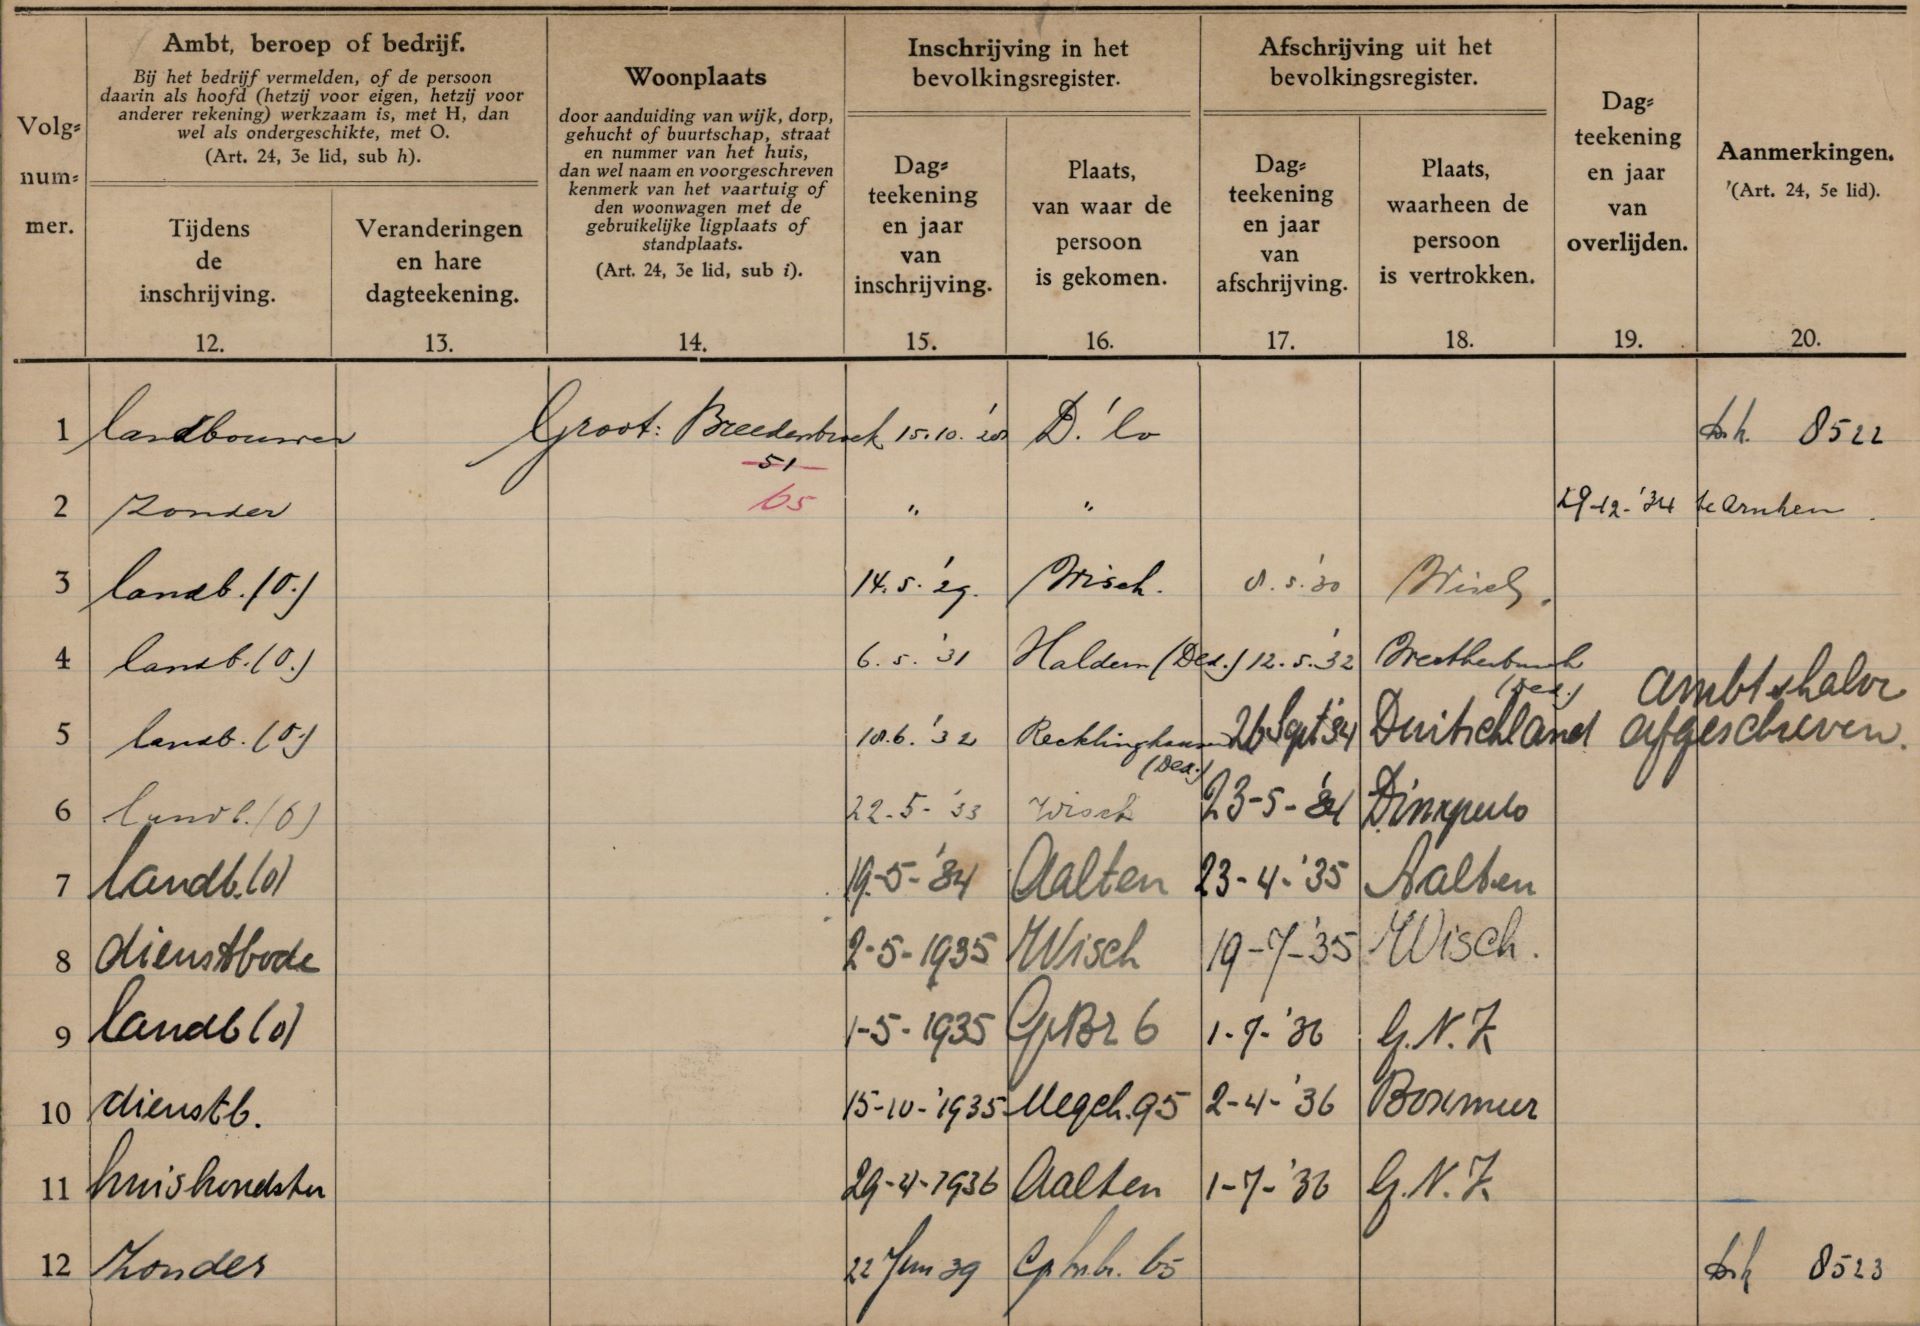 Volg=
num=
mer.
Ambt, beroep of bedrijf.
Bij het bedrijf vermelden, of de persoon
daarin als hoofd (hetzij voor eigen, hetzij voor
anderer rekening) werkzaam is, met H, dan
wel als ondergeschikte, met O.
(Art. 24, 3e lid, sub h).
Tijdens
de
inschrijving.
12.
Veranderingen
en hare
dagteekening.
13.
Woonplaats
door aanduiding van wijk, dorp,
gehucht of buurtschap, straat
en nummer van het huis,
dan wel naam en voorgeschreven
kenmerk van het vaartuig of
den woonwagen met de
gebruikelijke ligplaats of
standplaats.
(Art. 24, 3e lid, sub i).
14.
Inschrijving in het
bevolkingsregister.
Dag=
teekening
en jaar
van
inschrijving.
15.
Plaats,
van waar de
persoon
is gekomen.
16.
Afschrijving uit het
bevolkingsregister.
Dag=
teekening
en jaar
van
afschrijving.
17.
Plaats,
waarheen de
persoon
is vertrokken.
18.
Dag=
teekening
en jaar
van
overlijden.
19.
Aanmerkingen.
(Art. 24, 5e lid).
20.
1 landbouwer Groot: Breedenbroek 15.10.'20 D.'lo 8522
51
65
2 zonder " " 29-12-'34 te Arnhem
3 landb. (O.) 14.5.'29. Wisch. 8.5.'30 Wisch.
4 landb. (O.) 6.5.'31 Haldern (Dld.) 12.5.'32 (Dld.)
5 landb. (O.) 18.6.'32 Recklinghausen (Dld.) 26 Sept '34 Duitschland ambtshalve
afgeschreven.
6 landb. (O) 22-5-'33 Wisch 23-5-'34 Dinxperlo
7 landb. (o) 19-5-'34 Aalten 23-4-'35 Aalten
8 dienstbode 2-5-1935 Wisch 19-7-'35 Wisch.
9 landb (o) 1-5-1935 Gr.Br 6 1-7-'36 G.N.K
10 dienstb. 15-10-'1935 Megch. 95 2-4-'36 Boxmeer
11 huishoudster 29-4-1936 Aalten 1-7-'36 G.N.K
12 Zonder 22 Jun 39 65 8523